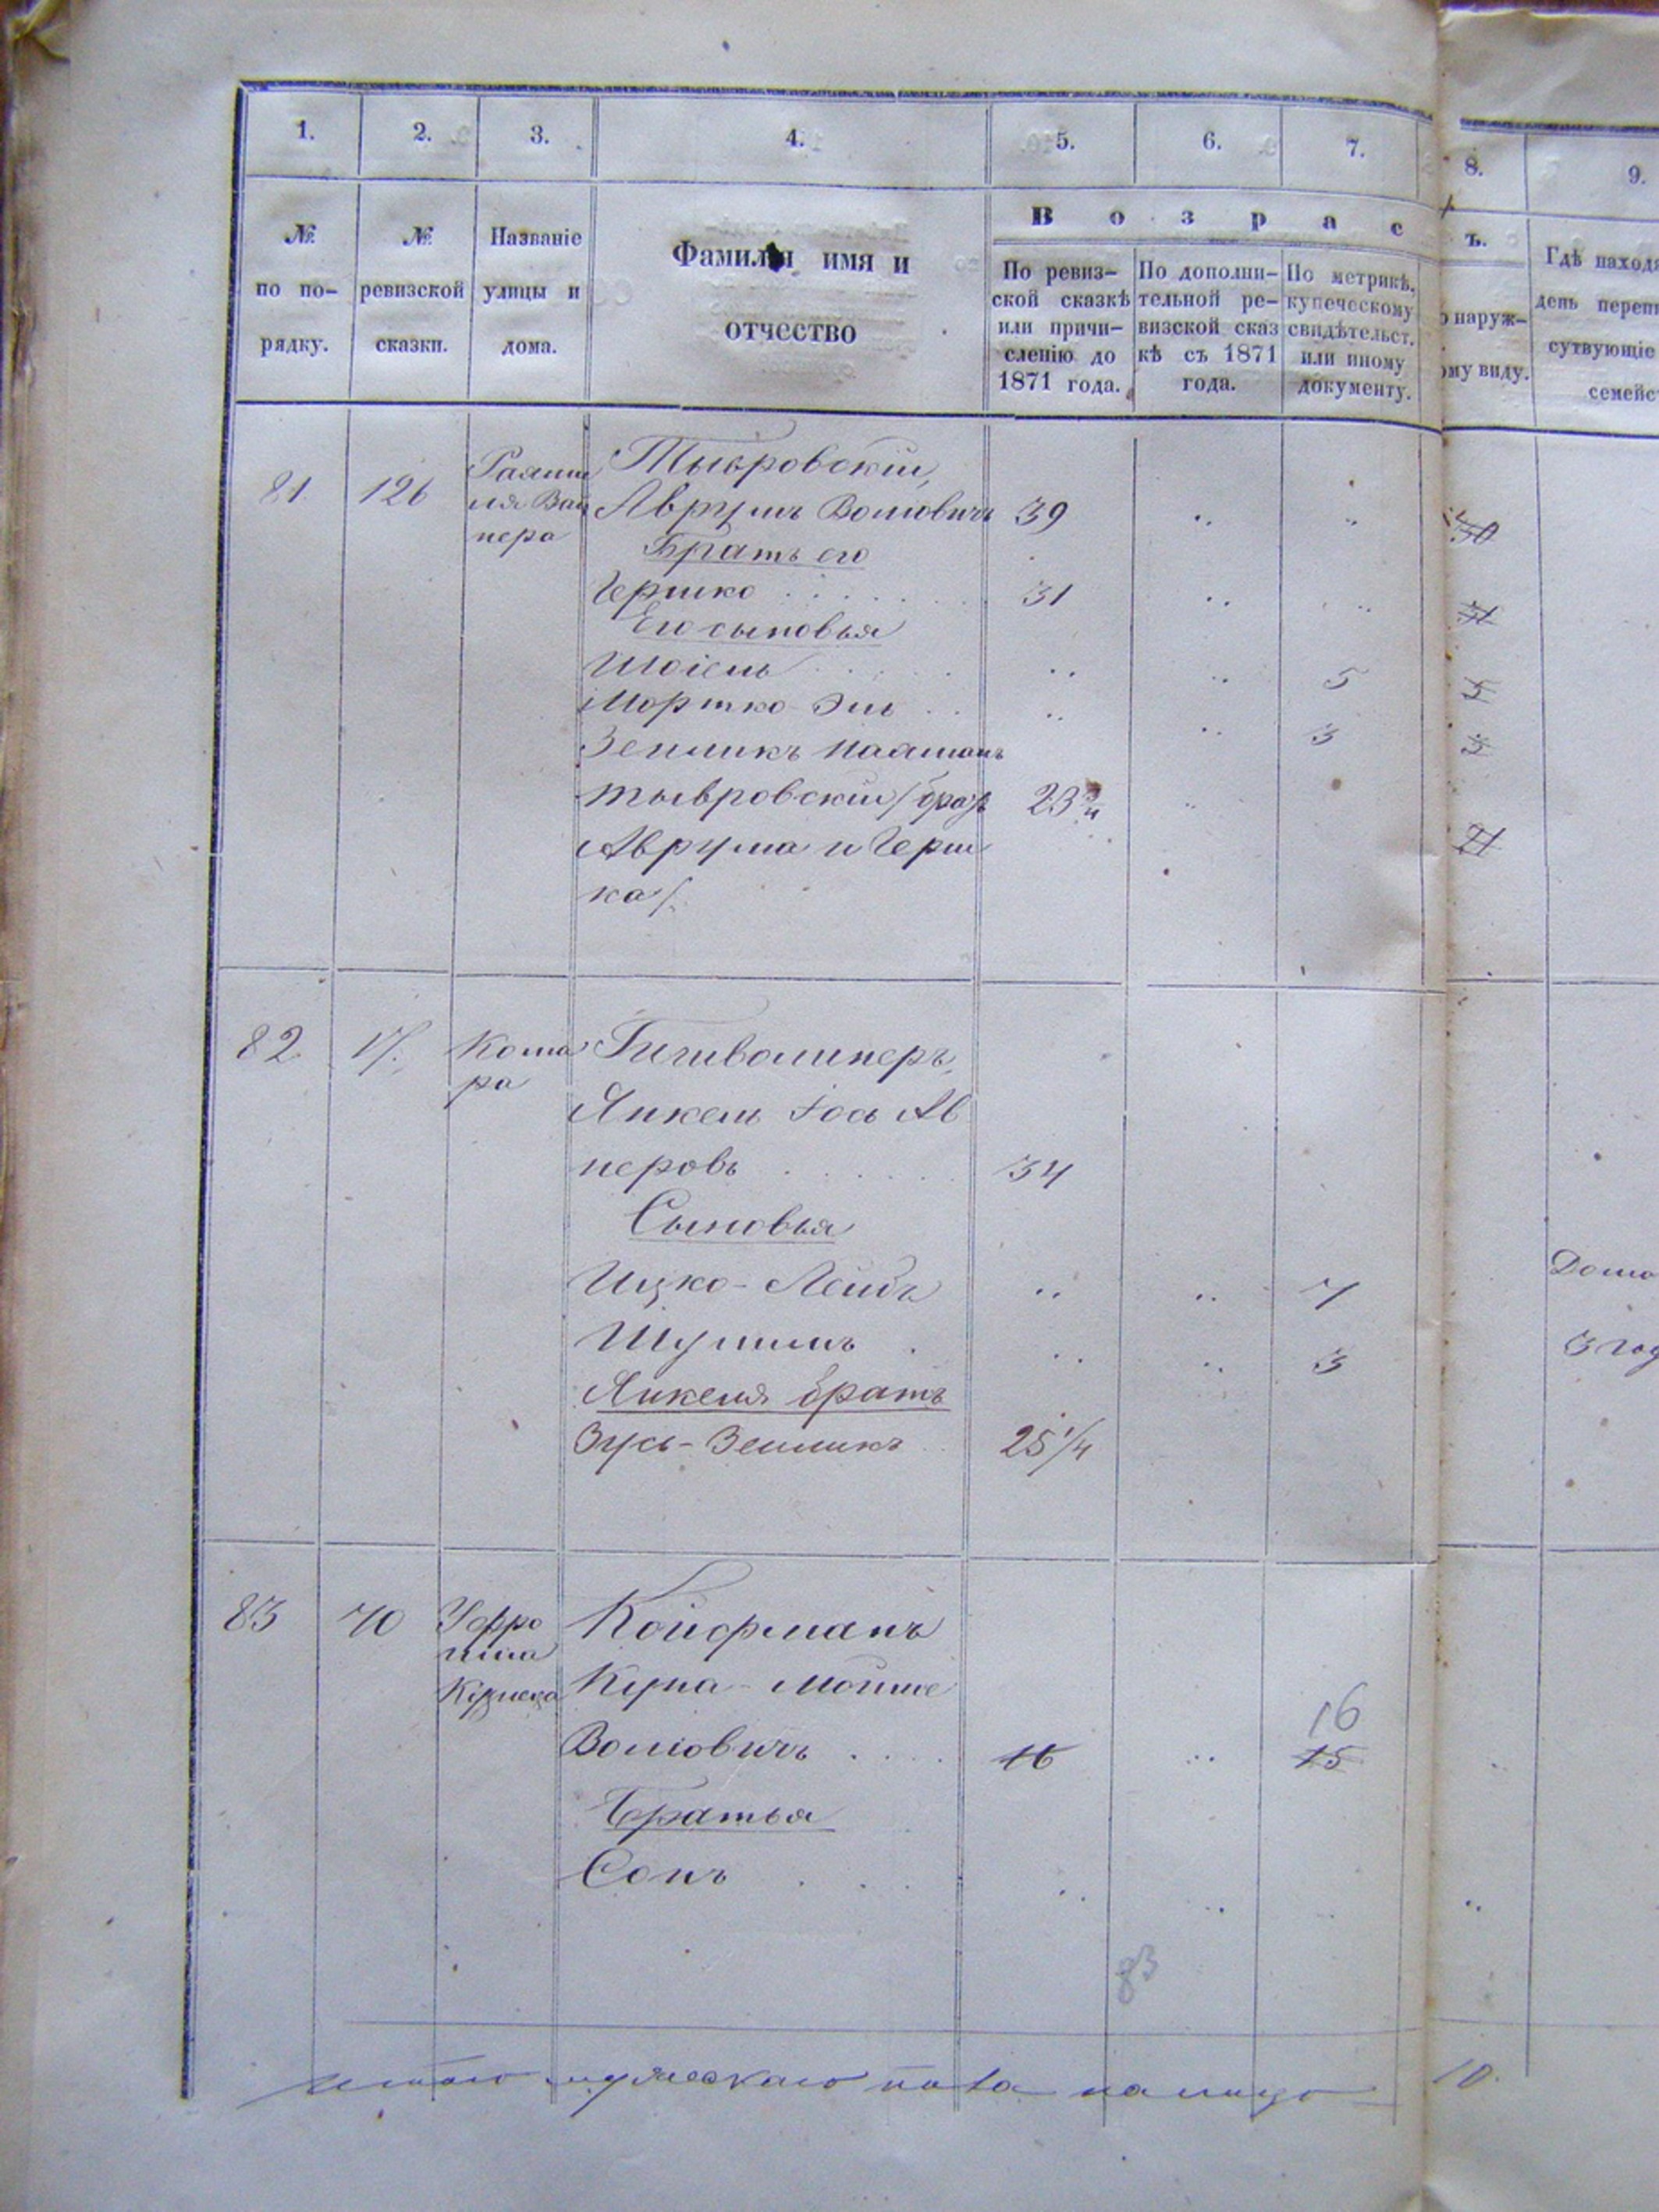 1. 2. 3. 4. 5. 6. 7. 8. 9.
№ по по-рядку.
№ ревизской сказки.
Названіе улицы и дома.
Фамилія имя и отчество
Возрас
ъ.
По ревиз-ской сказкѣ или причи-сленію до 1871 года.
По дополни-тельной ре-визской сказ кѣ съ 1871 года.
По метрикѣ, купеческому свидѣтельст. или иному документу.
наруж-
ому виду.
Гдѣ находя
день перепи
сутвующіе
семейс
81 126
Тывровскій,
Аврумъ Волковичъ 39
Братъ его
Гершко 31
Его сыновья
Шоіель 5 5
Мортко Эль 3 3
Зейликъ Нааманъ
Тывровскій /братъ 23
Аврума и Герш
ка/.
82 17. Кома
ра
Янкель Іось Ав
неровъ 34
Сыновья
Ицко-Лейбъ 7
Шулимъ 3
Янкеля братъ
Зусь-Зейликъ 25 1/4
83 70
Кузнеца
Койфманъ
Купа-Мойше
16
Волковичъ 16 15
Братья
Сонъ
83
Итого мужескаго пола на лицо 10.